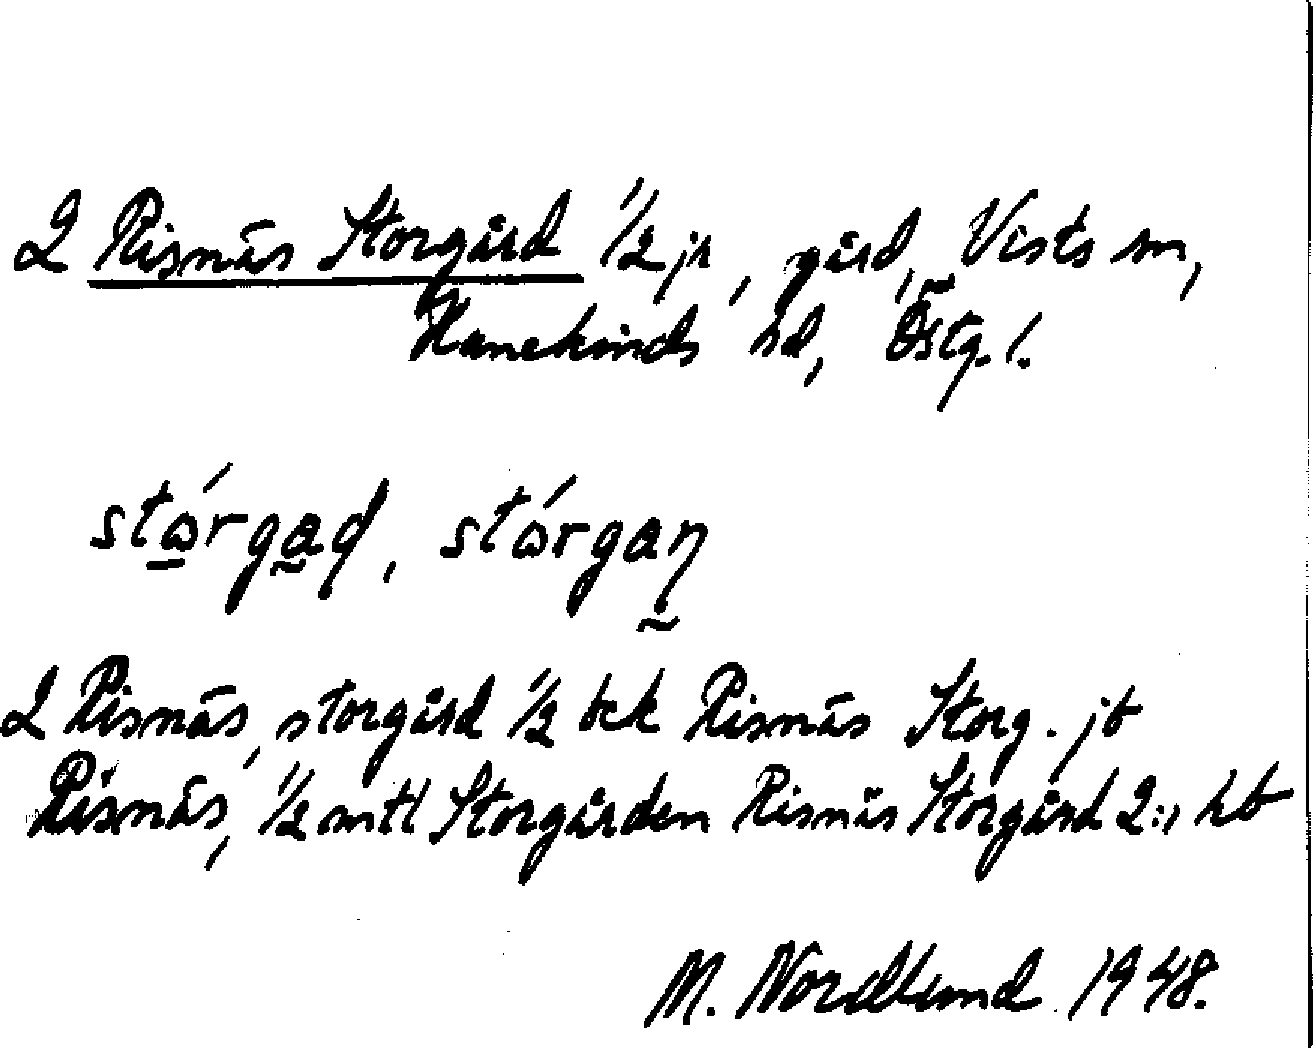 2 Risnäs Storgård 1/2 jr, gård, Vists sn,
Hanekinds hd, Östg. l.
stɷ́rgaḍ, stɷ́rgaṇ
2 Risnäs, storgård 1/2 bck Risnäs Storg. jb
Risnäs, 1/2 mtl Storgården Risnäs Storgård 2:1 hb
M. Nordlund 1948.